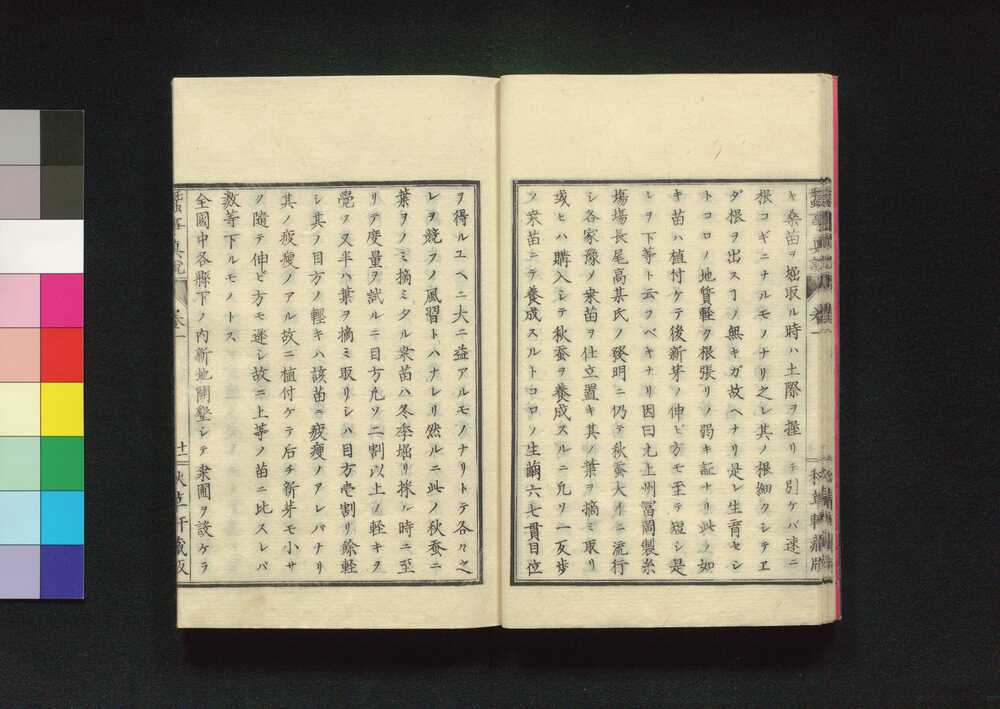 キ桑苗ヲ堀取ル時ハ土際ヲ握リテ別ケバ速ニ
根コギニナルモノナリ之レ其ノ根細クシテヱ
ダ根ヲ出スヿノ無キガ故ヘナリ是レ生育セシ
トコロノ地質軽ク根張リノ弱キ証ナリ此ノ如
キ苗ハ植付ケテ後新芽ノ伸ビ方モ至テ短シ是
レヲ下等ト云フベキナリ因曰上州冨岡製糸
塲塲長尾高某氏ノ發明ニ仍テ秋蚕大イニ流行
シ各家豫メ桒苗ヲ仕立置キ其ノ葉ヲ摘ミ取リ
或ヒハ購入シテ秋蚕ヲ養成スルニ凡ソ一反歩
ノ桒苗ニテ養成スルトコロノ生繭六七貫目位
ヲ得ルユヘニ大ニ益アルモノナリトテ各々之
レヲ競フノ風習トハナレリ然ルニ此ノ秋蚕ニ
葉ヲノミ摘ミタル桒苗ハ冬季堀リ採ル時ニ至
リテ度量ヲ試ルニ目方凡ソ二割以上ノ軽キヲ
覺フ又半ハ葉ヲ摘ミ取リシハ目方壱割リ餘軽
シ其ノ目方ノ軽キハ該苗ニ疲瘦ノアレバナリ
其ノ疲瘦ノアル故ニ植付ケテ后チ新芽モ小サ
ノ隨テ伸ビ方モ遅シ故ニ上等ノ苗ニ比スレバ
数等下ルモノトス
全國中各縣下ノ内新地開墾シテ桒圃ヲ設ケラ
蚕事真説 卷一 十二 秋草軒藏版